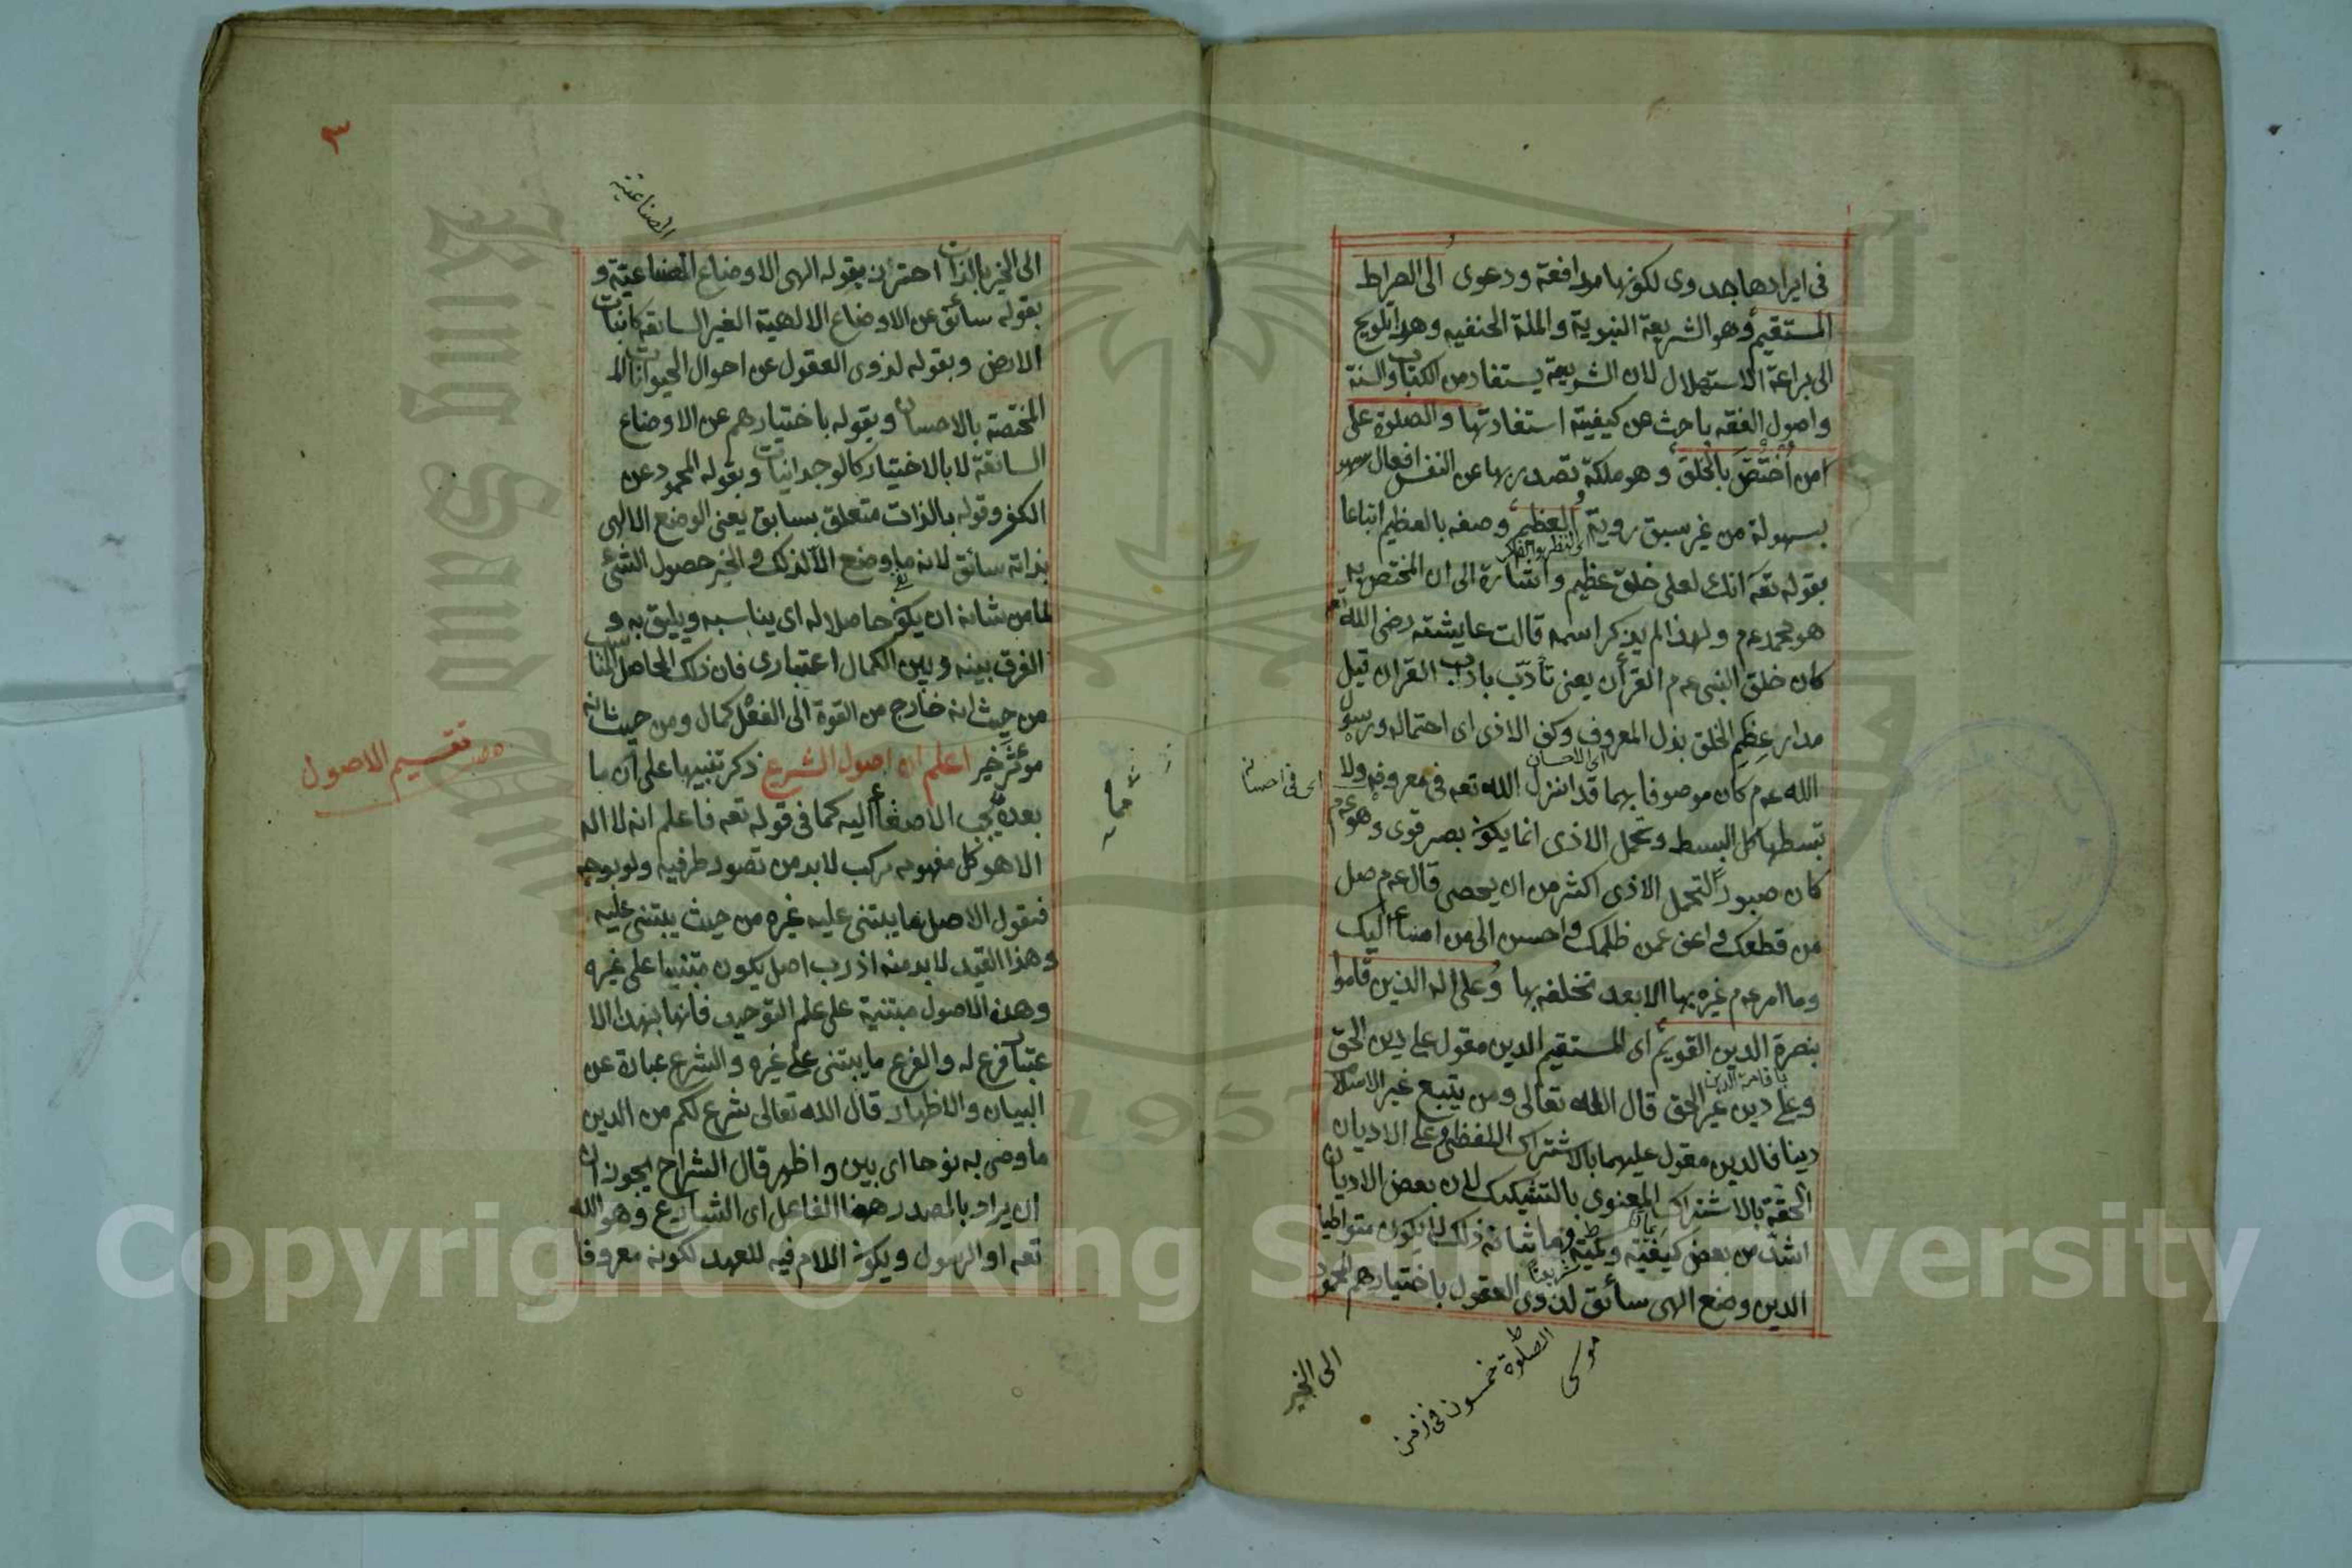 فى ايرادها جدوى لكونها مدافعة ودعوى الى الصراط
المستقيم وهو الشريعة النبوية والملة الحنفيه وهذا تلويح
الى براعة الاستهلال لان الشريعة يستفاد من الكتاب والسنة
واصول الفقه باحث عن كيفية استفادتها والصلوة على
من اختص بالخلق وهو ملكة تصدر بها عن النفس افعال
بسهولة من غير سبق روية العظيم وصفه بالعظيم اتباعا
اى النظر والفكر
بقوله تعه انك لعلى خلق عظيم واشارة الى ان المختص به
هو محمد عم ولهذا لم يذكر اسمه قالت عايشته رضى الله
كان خلق النبى عم القرأن يعنى تأدّب باداب القران قيل
مدار عظيم الخلق بذل المعروف وكف الاذى اى احتماله ورسول
اى الاحسان
الله عم كان موصوفا بهما قد انزل الله تعه فى معروفه ولا
اى فى احسانه
تبسطها كل البسط وتحمل الاذى انما يكون بصبر قوى وهو عم
كان صبورا لتحمل الاذى اكثر من ان يحصى قال عم صل
من قطعك واعف عمن ظلمك واحسن الى من اساء اليك
وما امر عم غيره بها الا بعد تخلقه بها وعلى اله الذين قاموا
بنصرة الدين القويم اى المستقيم الدين مقول على دين الحق
باقامة الدين
وعلى دين غير الحق قال الله تعالى ومن يتبع غير الاسلام
دينا فالدين مقول عليهما بالاشتراك اللفظى وعلى الاديان
الحقة بالاشتراك المعنوى بالتشكيك لان بعض الاديان
اشد من بعض كيفية وكمية وما شانه ذلك لا يكون متواطيا
الدين وضع الهى سائق لذوى العقول باختيارهم المحمود
الصلوة خمسون فى زمن
موسى
الى الخير
٣
الصناعية
الى الخير بالذات احترز بقوله الهى الاوضاع الصناعية و
بقوله سائق عن الاوضاع الالهية الغير السابقة كانبات
الارض وبقوله لذوى العقول عن احوال الحيوانات
المختصة بالاحسان وبقوله باختيارهم عن الاوضاع
السائقة لا بالاختيار كالوجدانيات وبقوله المحمود عن
الكفر وقوله بالذات متعلق بسابق يعنى الوضع الالهى
بذاته سائق لانه ما وضع الا لذلك والخير حصول الشئ
لما من شانه ان يكون حاصلا له اى يناسبه ويليق به و
الفرق بينه وبين الكمال اعتبارى فان ذلك الحاصل المناسب
من حيث انه خارج من القوة الى الفعل كمال ومن حيث انه
موثر خير اعلم ان اصول الشرع ذكر تنبيها على ان ما
تقسيم الاصول
بعده يجب الاصغاء اليه كما فى قوله تعه فاعلم انه لا اله
الا هو كل مفهوم مركب لابد من تصور طرفيه ولو بوجه
فنقول الاصل ما يبتنى عليه غيره من حيث يبتنى عليه
وهذا القيد لابد منه اذ رب اصل يكون مبتنيا على غيره
وهذه الاصول مبتنية على علم التوحيد فانها بهذا الا
عتبار فرع له والفرع ما يبتنى على غيره والشرع عبارة عن
البيان والاظهار قال الله تعالى شرع لكم من الدين
ما وصى به نوحا اى بين واظهر قال الشراح يجوز ان
ان يراد بالمصدر ههنا الفاعل اى الشارع وهو الله
تعه او الرسول ويكون اللام فيه للعهد لكونه معروفا
Copyright © King Saud University
King Saud
1957